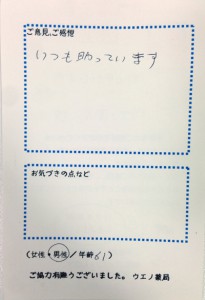 ご意見、ご感想
いつも助っています
お気づきの点など
(女性・男性/年齢61)
ご協力有難うございました。ウエノ薬局